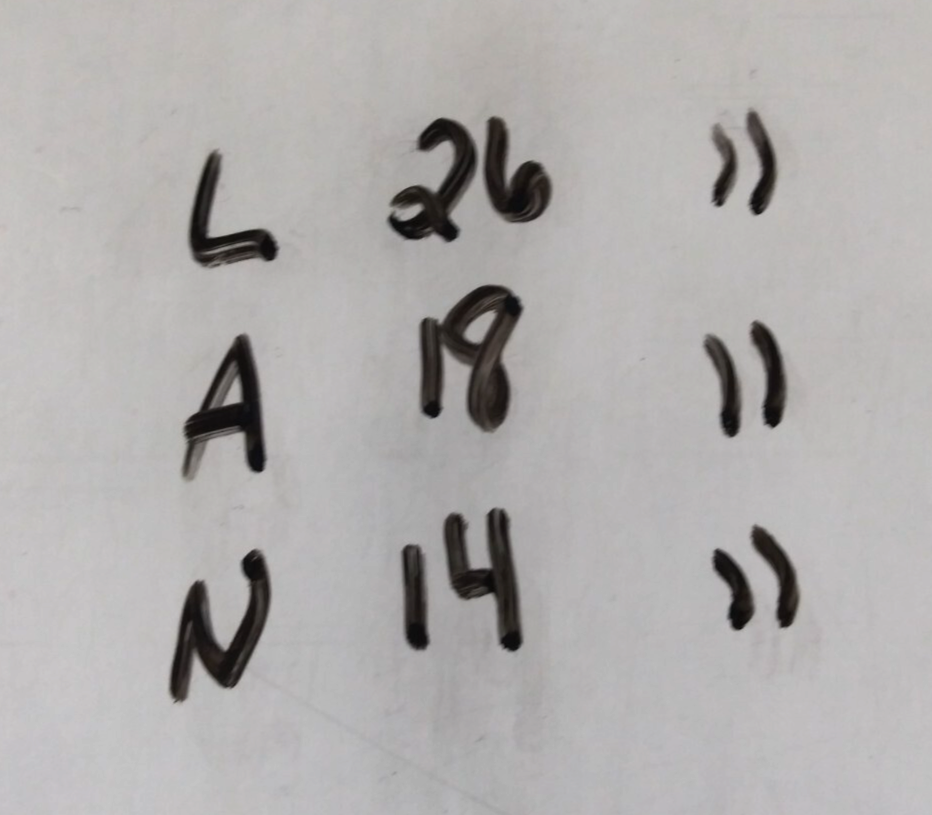 L 26 "
A 18 "
N 14 "